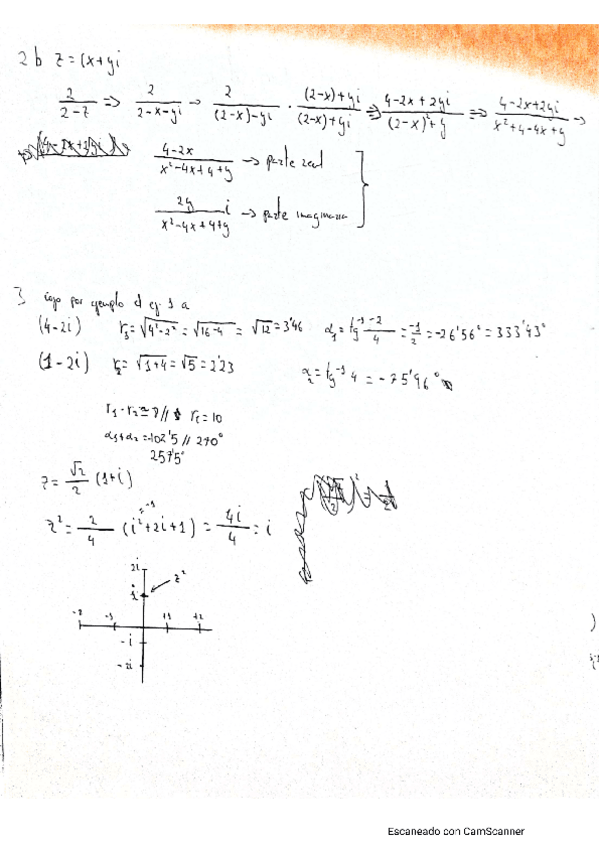 2b z = (x+yi
2/(2-z) => 2/(2-x-yi) -> 2/((2-x)-yi) · ((2-x)+yi)/((2-x)+yi) => (4-2x+2yi)/((2-x)²+y) => (4-2x+2yi)/(x²+4-4x+y) ->
(4-2x)/(x²-4x+4+y) -> parte real
2y/(x²-4x+4+y) i -> parte imaginaria
3 por ejemplo el ej. 1 a
(4-2i) r₁ = √(4²-2²) = √(16-4) = √12 = 3'46 α₁ = tg⁻¹ -2/4 = -1/2 = -26'56° = 333'43°
(1-2i) r₂ = √(1+4) = √5 = 2'23 α₂ = tg⁻¹ 4 = -75'96°
r₁·r₂ = 7 // rₜ = 10
α₁+α₂ = -102'5 // 270°
257'5°
z = √2/2 (1+i)
z² = 2/4 (i²+2i+1) = 4i/4 = i
=-1
2i
i
z²
-2 -1 +1 +2
-i
-2i
)
Escaneado con CamScanner